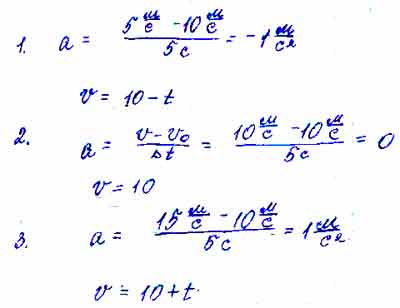 1. a = (5 м/с - 10 м/с) / 5 с = -1 м/с²
v = 10 - t
2. a = (v - v₀) / Δt = (10 м/с - 10 м/с) / 5 с = 0
v = 10
3. a = (15 м/с - 10 м/с) / 5 с = 1 м/с²
v = 10 + t